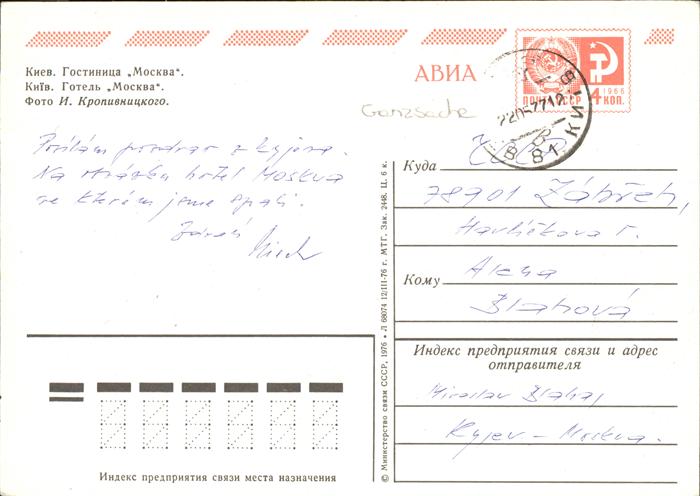 АВИА
1966
ПОЧТА СССР 4 КОП.
КИЇВ
Киев. Гостиница „Москва“.
Київ. Готель „Москва“.
Фото И. Кропивницкого.
Ganzsache
Posílám pozdrav z Kyjeva.
Na obrázku hotel Moskva
ve kterém jsme spali.
Zdraví
Куда
78901 Zábřeh,
Havlíčkova
Кому Alena
Blahová
Индекс предприятия связи и адрес
отправителя
Miroslav Blaha,
Kyjev – Moskva.
Индекс предприятия связи места назначения
© Министерство связи СССР, 1976 • Л 68074 12/III-76 г. МТГ. Зак. 2448. Ц. 6 к.